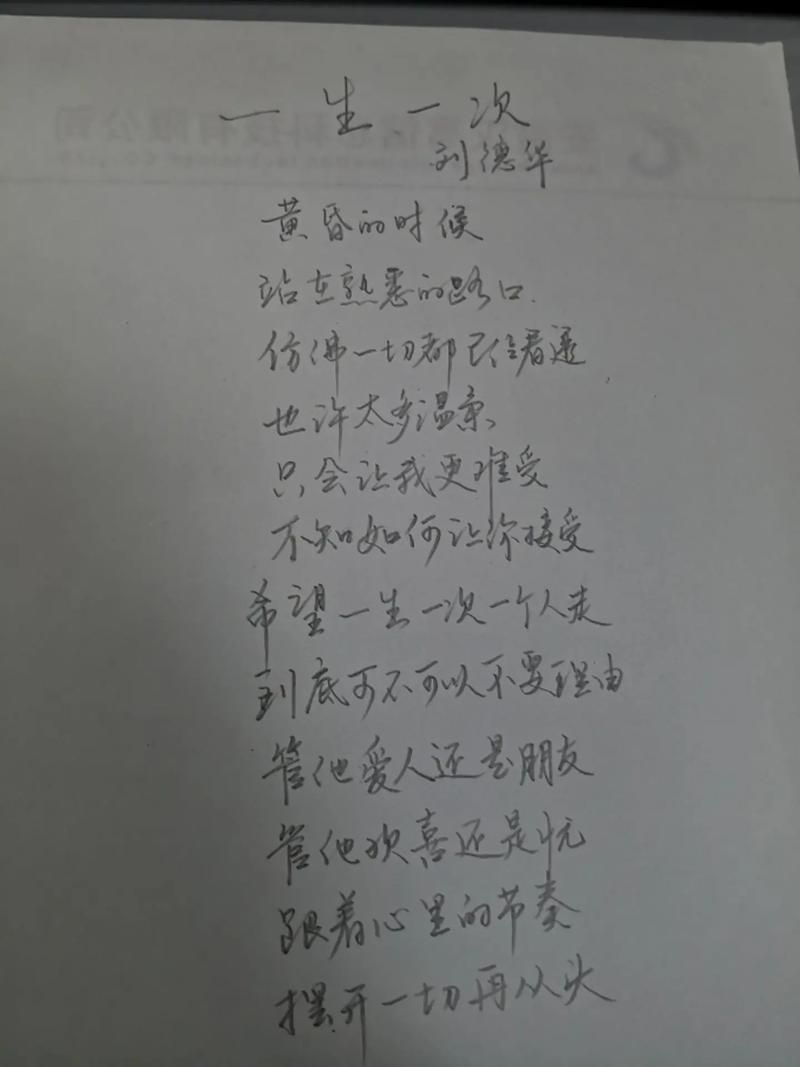 一生一次
刘德华
黄昏的时候
站在熟悉的路口
仿佛一切都已经看透
也许太多温柔
只会让我更难受
不知如何让你接受
希望一生一次一个人走
到底可不可以不要理由
管他爱人还是朋友
管他欢喜还是忧
跟着心里的节奏
摆开一切再从头
科技有限公司